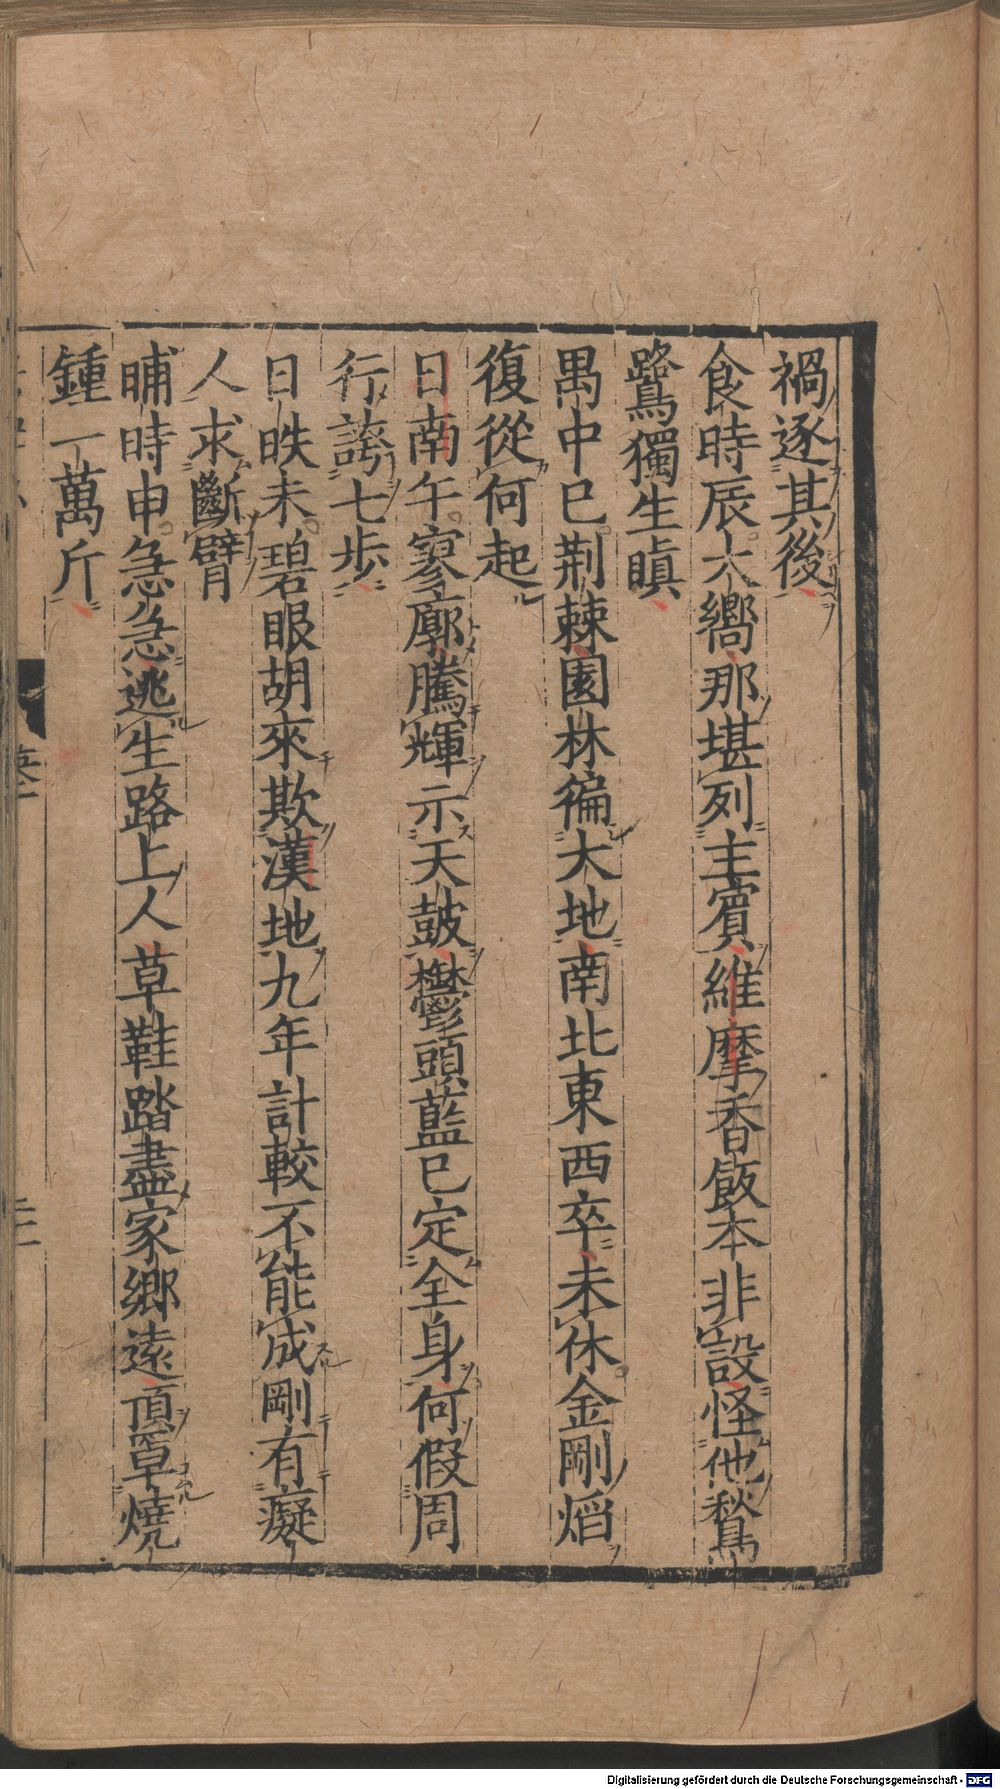 禍逐其後
食時辰大嚮那堪列主賓維摩香飯本非設怪他鶖
鷺獨生瞋
禺中巳荆棘園林徧大地南北東西卒未休金剛焰
復從何起
日南午寥廓騰輝示天鼓鬱頭藍已定全身何假周
行誇七步
日昳未碧眼胡來欺漢地九年計較不能成剛有癡
人求斷臂
晡時申急急逃生路上人草鞋踏盡家鄉遠頂罩燒
鍾一萬斤
Digitalisierung gefördert durch die Deutsche Forschungsgemeinschaft - DFG